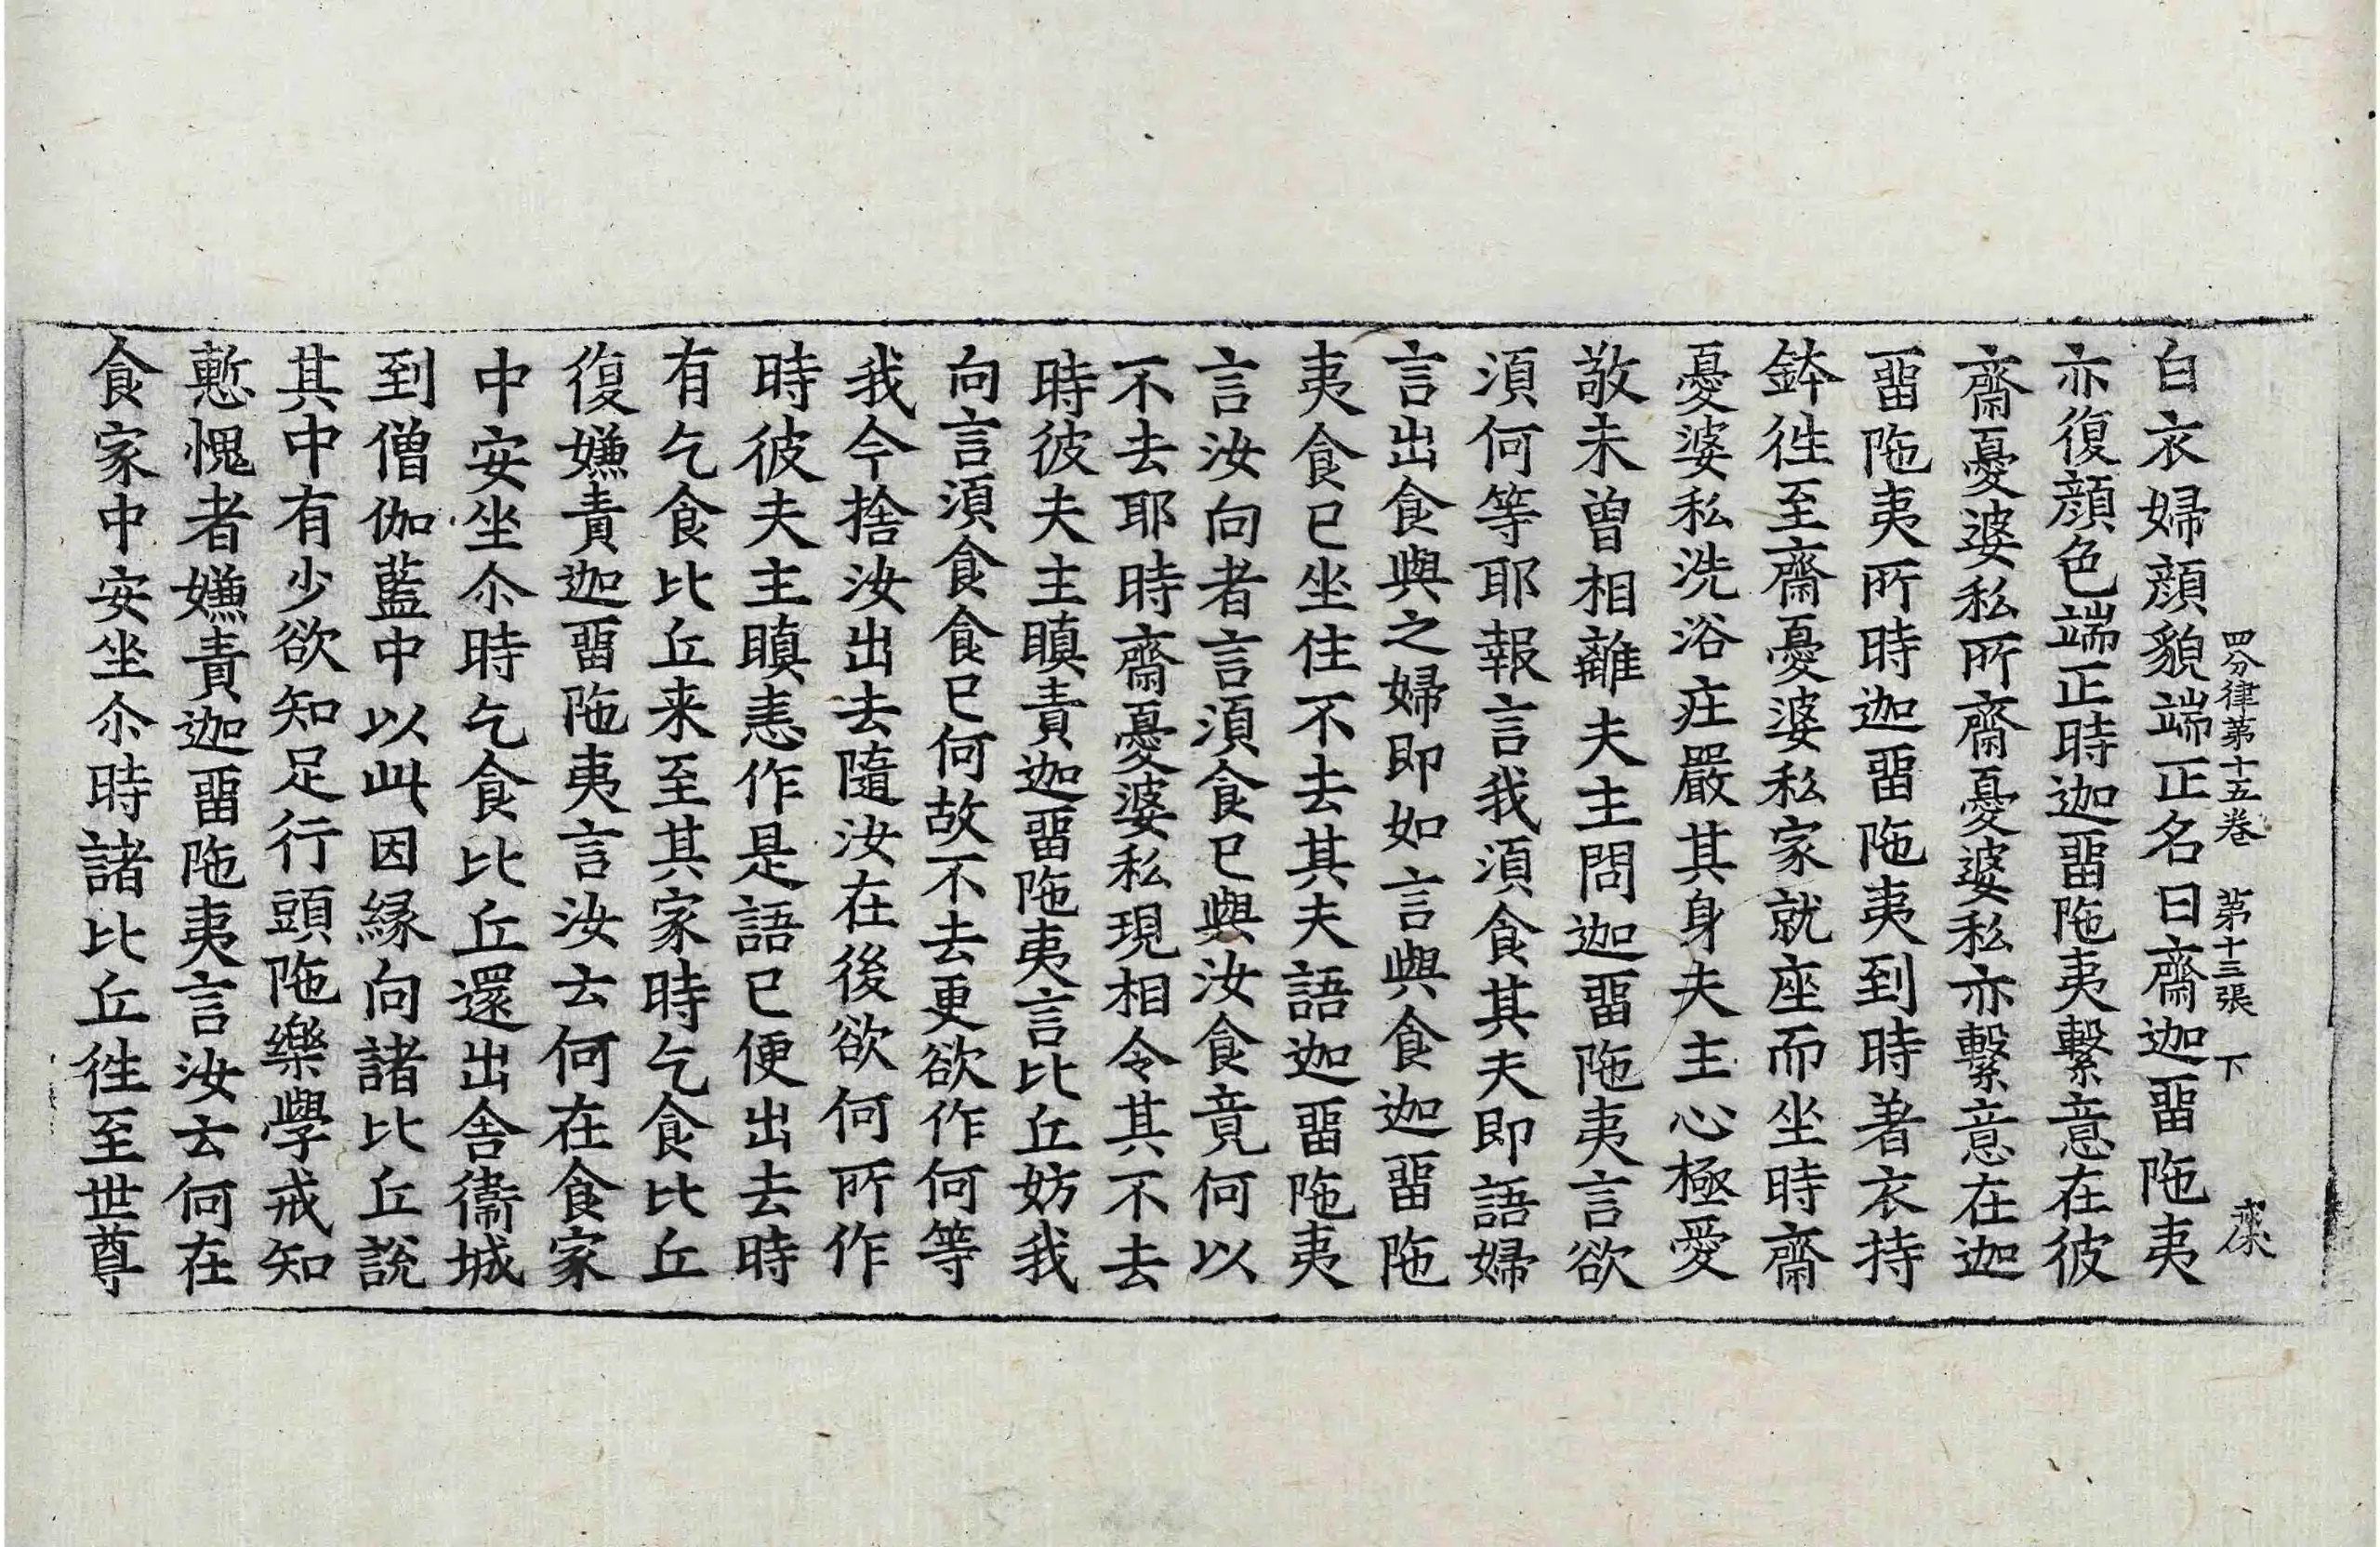 四分律第十五卷 第十三張 下
白衣婦顔貌端正名曰齋迦留陁夷
亦復顔色端正時迦留陁夷繫意在彼
齋憂婆私所齋憂婆私亦繫意在迦
留陁夷所時迦留陁夷到時著衣持
鉢徃至齋憂婆私家就座而坐時齋
憂婆私洗浴莊嚴其身夫主心極愛
敬未曾相離夫主問迦留陁夷言欲
須何等耶報言我須食其夫即語婦
言出食與之婦即如言與食迦留陁
夷食已坐住不去其夫語迦留陁夷
言汝向者言須食已與汝食竟何以
不去耶時齋憂婆私現相令其不去
時彼夫主瞋責迦留陁夷言比丘妨我
向言須食食已何故不去更欲作何等
我今捨汝出去隨汝在後欲何所作
時彼夫主瞋恚作是語已便出去時
有乞食比丘来至其家時乞食比丘
復嫌責迦留陁夷言汝云何在食家
中安坐尒時乞食比丘還出舎衛城
到僧伽藍中以此因縁向諸比丘說
其中有少欲知足行頭陁樂學戒知
慙愧者嫌責迦留陁夷言汝云何在
食家中安坐尒時諸比丘徃至世尊